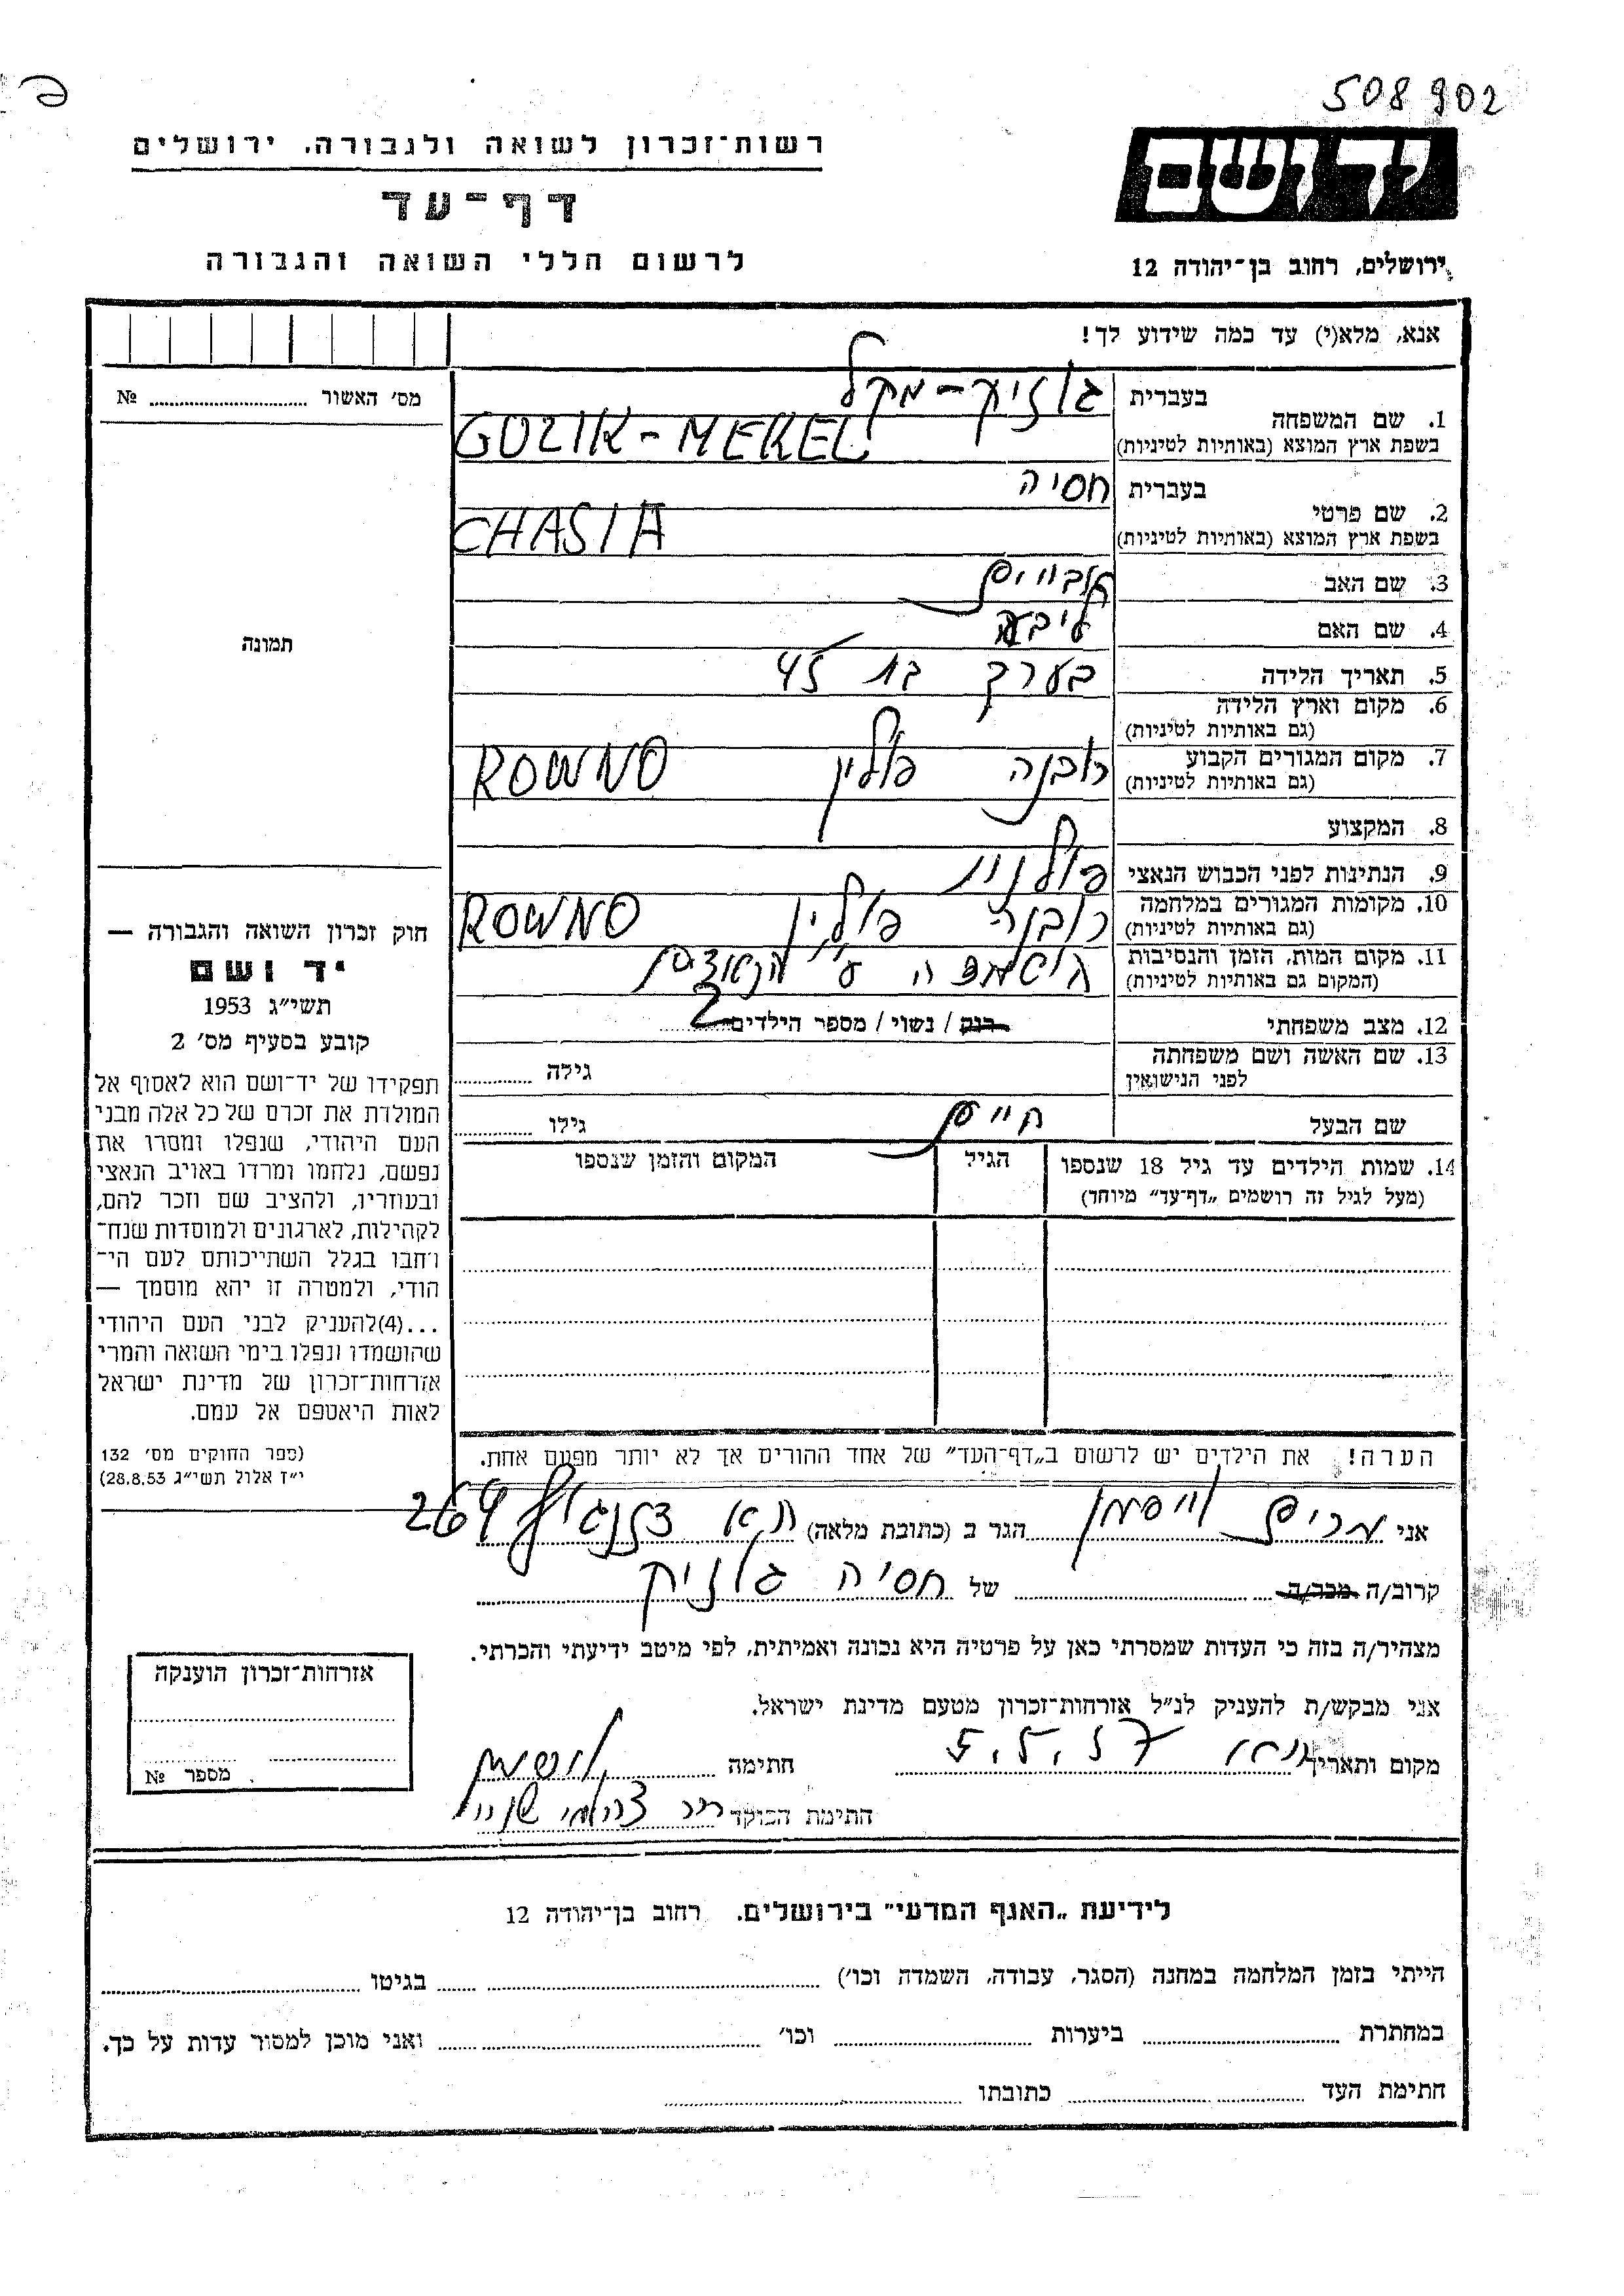 508902
רשות־זכרון לשואה ולגבורה, ירושלים
דף־עד
לרשום חללי השואה והגבורה
ידושם
ירושלים, רחוב בן־יהודה 12
אנא, מלא(י) עד כמה שידוע לך!
מס' האשור № ........
תמונה
1. שם המשפחה בעברית גוזיק-מקל
בשפת ארץ המוצא (באותיות לטיניות) GUZIK-MEKEL
2. שם פרטי בעברית חסיה
בשפת ארץ המוצא (באותיות לטיניות) CHASIA
3. שם האב
4. שם האם ליבה
5. תאריך הלידה בערך בת 45
6. מקום וארץ הלידה
(גם באותיות לטיניות)
7. מקום המגורים הקבוע רובנה פולין ROWNO
(גם באותיות לטיניות)
8. המקצוע
9. הנתינות לפני הכבוש הנאצי פולנית
10. מקומות המגורים במלחמה רובנה פולין ROWNO
(גם באותיות לטיניות)
11. מקום המות, הזמן והנסיבות הושמדה ע"י הנאצים
(המקום גם באותיות לטיניות)
12. מצב משפחתי רוק / נשוי / מספר הילדים 2
13. שם האשה ושם משפחתה
לפני הנישואין גילה ........
שם הבעל חיים גילו ........
14. שמות הילדים עד גיל 18 שנספו הגיל המקום והזמן שנספו
(מעל לגיל זה רושמים „דף־עד" מיוחד)
הערה! את הילדים יש לרשום ב„דף־העד" של אחד ההורים אך לא יותר מפעם אחת.
חוק זכרון השואה והגבורה —
יד ושם
תשי"ג 1953
קובע בסעיף מס' 2
תפקידו של יד־ושם הוא לאסוף אל
המולדת את זכרם של כל אלה מבני
העם היהודי, שנפלו ומסרו את
נפשם, נלחמו ומרדו באויב הנאצי
ובעוזריו, ולהציב שם וזכר להם,
לקהילות, לארגונים ולמוסדות שנח־
רחבו בגלל השתייכותם לעם הי־
הודי, ולמטרה זו יהא מוסמך —
...(4)להעניק לבני העם היהודי
שהושמדו ונפלו בימי השואה והמרי
אזרחות־זכרון של מדינת ישראל
לאות היאספם אל עמם.
(ספר החוקים מס' 132
י"ז אלול תשי"ג 28.8.53)
אני מרים וייסמן הגר ב (כתובת מלאה) ת"א דיזנגוף 269
קרוב/ה מכר/ה ........ של חסיה גוזיק
מצהיר/ה בזה כי העדות שמסרתי כאן על פרטיה היא נכונה ואמיתית, לפי מיטב ידיעתי והכרתי.
אני מבקש/ת להעניק לנ"ל אזרחות־זכרון מטעם מדינת ישראל.
מקום ותאריך 5.5.57 חתימה
חתימת הפוקד
אזרחות־זכרון הוענקה
מספר №
לידיעת „האגף המדעי" בירושלים. רחוב בן־יהודה 12
הייתי בזמן המלחמה במחנה (הסגר, עבודה, השמדה וכו') ........ בגיטו ........
במחתרת ........ ביערות ........ וכו' ........ ואני מוכן למסור עדות על כך.
חתימת העד ........ כתובתו ........